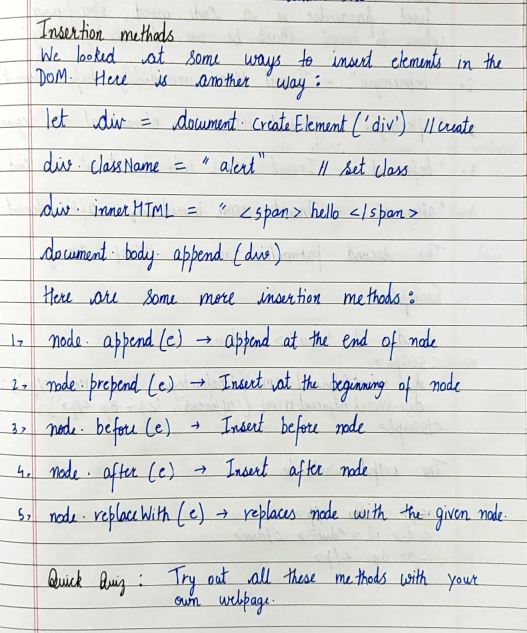 Insertion methods
We looked at some ways to insert elements in the
DOM. Here is another way :
let div = document.createElement('div') // create
div.className = "alert" // set class
div.innerHTML = " <span> hello </span>
document.body.append(div)
Here are some more insertion methods :
1, node.append(e) → append at the end of node
2, node.prepend(e) → Insert at the beginning of node
3, node.before(e) → Insert before node
4, node.after(e) → Insert after node
5, node.replaceWith(e) → replaces node with the given node.
Quick Quiz : Try out all these methods with your
own webpage.